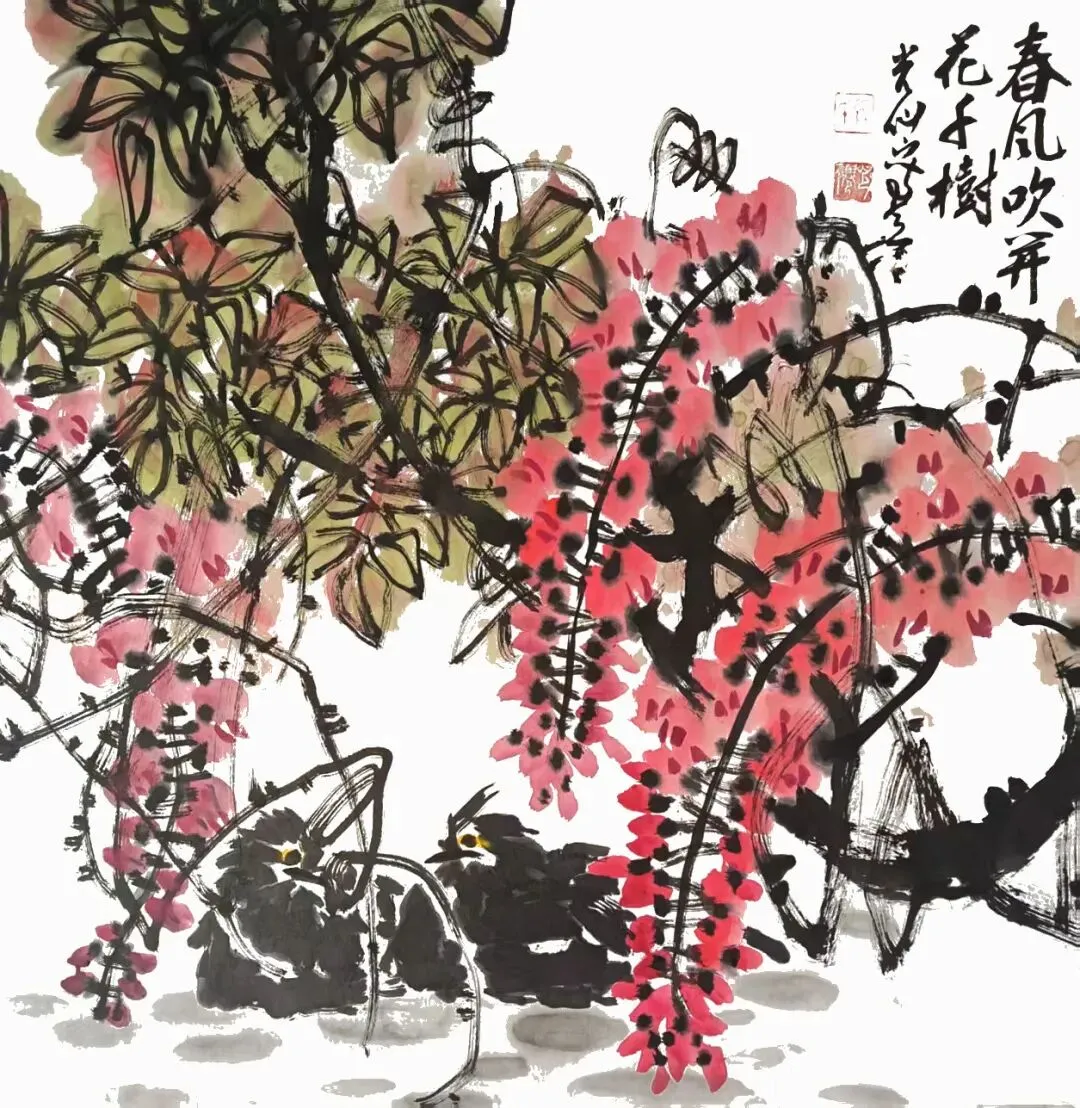 春风吹开
花千樹
光仙写